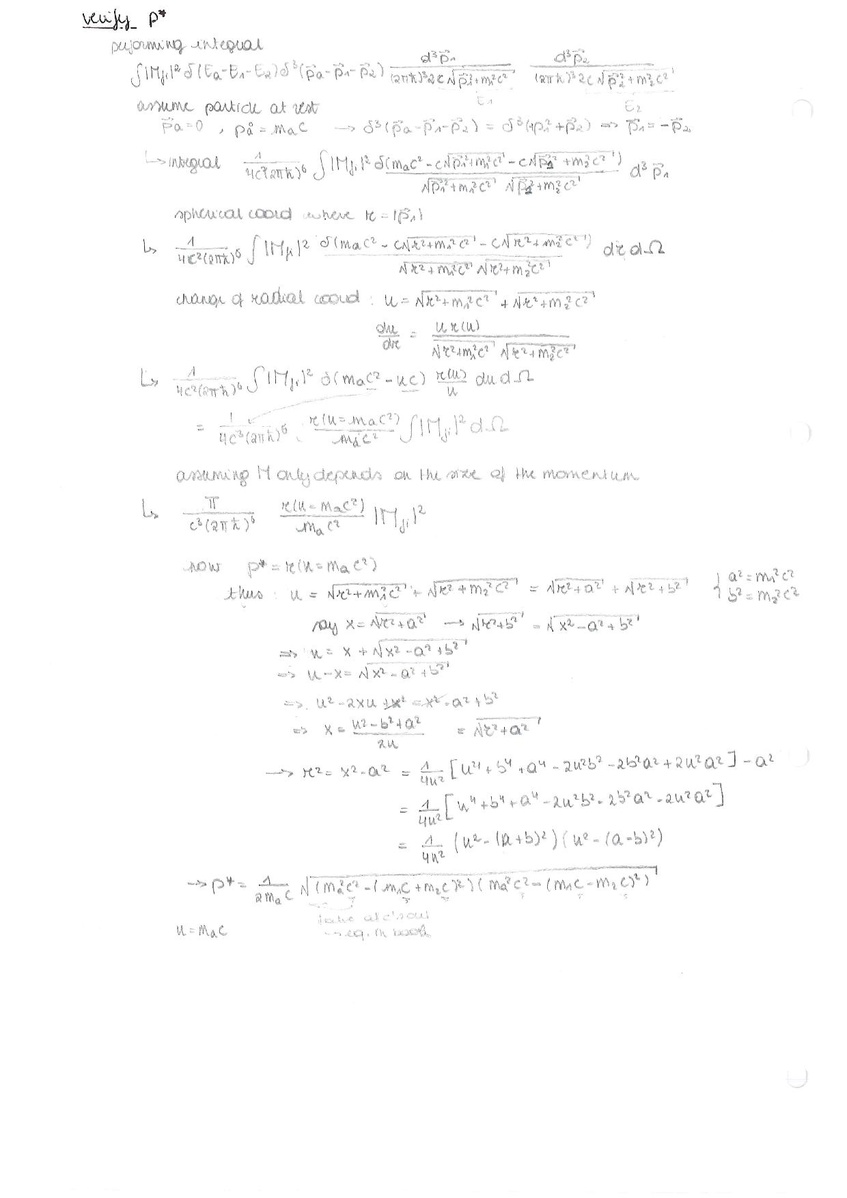 verify p*
performing integral
∫|Mji|² δ(Ea-E1-E2) δ³(p⃗a-p⃗1-p⃗2) d³p⃗1/((2πħ)³2c√(p⃗1²+m1²c²)) d³p⃗2/((2πħ)³2c√(p⃗2²+m2²c²))
E1 E2
assume particle at rest
p⃗a=0 , pa⁰=mac → δ³(p⃗a-p⃗1-p⃗2) = δ³(p⃗1+p⃗2) ⇒ p⃗1=-p⃗2
↳ integral 1/(4c²(2πħ)⁶) ∫|Mji|² δ(mac²-c√(p⃗1²+m1²c²)-c√(p⃗2²+m2²c²))/(√(p⃗1²+m1²c²) √(p⃗2²+m2²c²)) d³p⃗1
spherical coord where r=|p⃗1|
↳ 1/(4c²(2πħ)⁶) ∫|Mji|² δ(mac²-c√(r²+m1²c²)-c√(r²+m2²c²))/(√(r²+m1²c²) √(r²+m2²c²)) dr dΩ
change of radial coord : u=√(r²+m1²c²)+√(r²+m2²c²)
du/dr = u r(u)/(√(r²+m1²c²) √(r²+m2²c²))
↳ 1/(4c²(2πħ)⁶) ∫|Mji|² δ(mac²-uc) r(u)/u du dΩ
= 1/(4c³(2πħ)⁶) · r(u=mac²)/(mac²) ∫|Mji|² dΩ
assuming M only depends on the size of the momentum
↳ π/(c³(2πħ)⁶) r(u=mac²)/(mac²) |Mji|²
now p*=r(u=mac²)
thus : u = √(r²+m1²c²)+√(r²+m2²c²) = √(r²+a²)+√(r²+b²) { a²=m1²c² b²=m2²c²
say x=√(r²+a²) → √(r²+b²)=√(x²-a²+b²)
⇒ u=x+√(x²-a²+b²)
⇒ u-x=√(x²-a²+b²)
⇒ u²-2xu+x²=x²-a²+b²
⇒ x=(u²-b²+a²)/(2u) =√(r²+a²)
→ r²=x²-a² = 1/(4u²) [u⁴+b⁴+a⁴-2u²b²-2b²a²+2u²a²]-a²
= 1/(4u²) [u⁴+b⁴+a⁴-2u²b²-2b²a²-2u²a²]
= 1/(4u²) (u²-(a+b)²)(u²-(a-b)²)
→ p*= 1/(2mac) √((ma²c²-(m1c+m2c)²)(ma²c²-(m1c-m2c)²))
take all c's out
→ eq. in book
u=mac